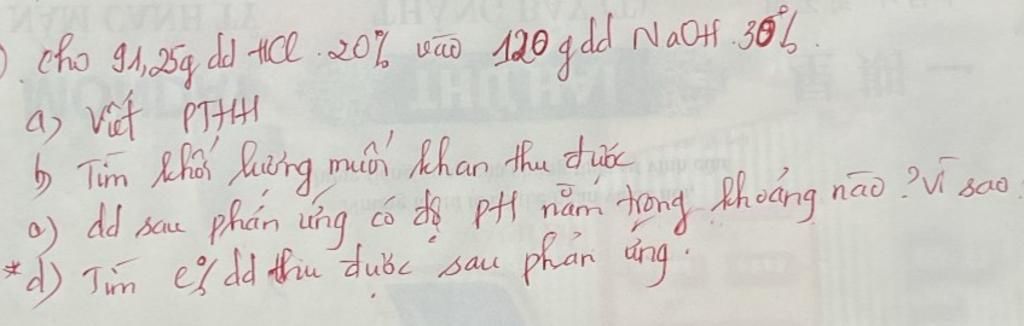 ). Cho 91,25g dd HCl. 20% vào 120 g dd NaOH. 30%.
a) Viết PTHH
b Tìm khối lượng muối khan thu được
c) dd sau phản ứng có độ pH nằm trong khoảng nào? Vì sao
*d) Tìm C% dd thu được sau phản ứng.